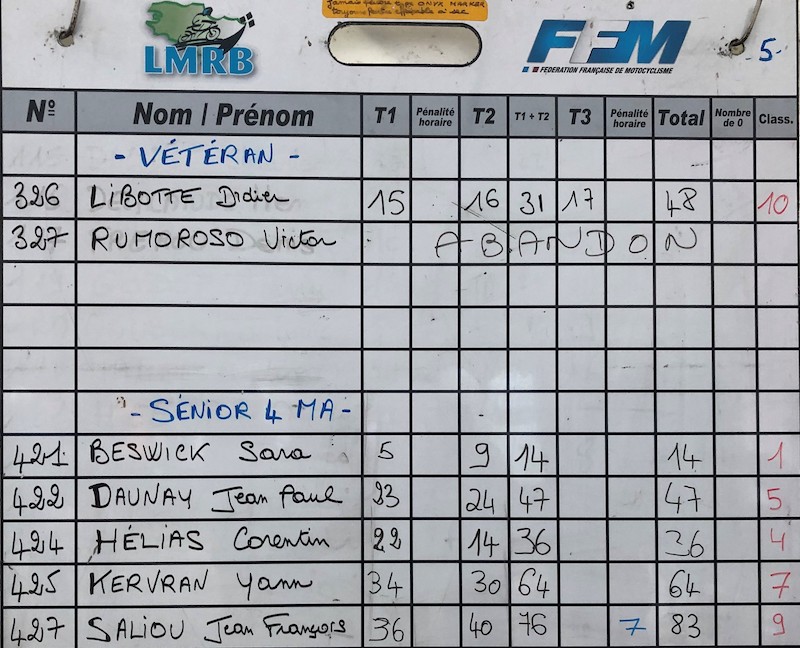 Jamais
LMRB
FFM
FEDERATION FRANÇAISE DE MOTOCYCLISME
5
Nº Nom / Prénom T1 Pénalité horaire T2 T1 + T2 T3 Pénalité horaire Total Nombre de 0 Class.
- VÉTÉRAN -
326 LIBOTTE Didier 15 16 31 17 48 10
327 RUMOROSO Victor ABANDON
- SÉNIOR 4 MA -
421 BESWICK Sara 5 9 14 14 1
422 DAUNAY Jean Paul 23 24 47 47 5
424 HÉLIAS Corentin 22 14 36 36 4
425 KERVRAN Yann 34 30 64 64 7
427 SALIOU Jean François 36 40 76 7 83 9